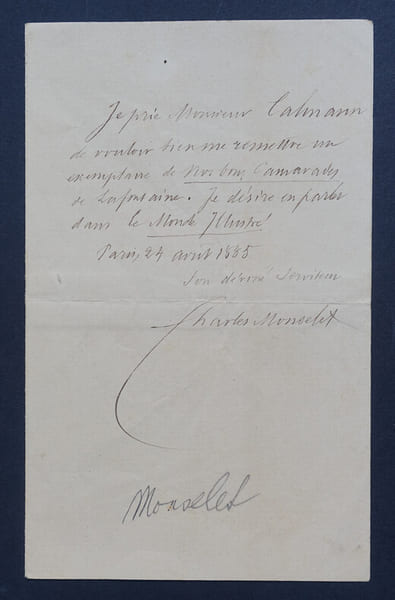 Je prie Monsieur Calmann
de vouloir bien me remettre un
exemplaire de Nos bons Camarades
de Lafontaine. Je désire en parler
dans le Monde Illustré
Paris, 24 août 1885
Son dévoué Serviteur
Charles Monselet
Monselet